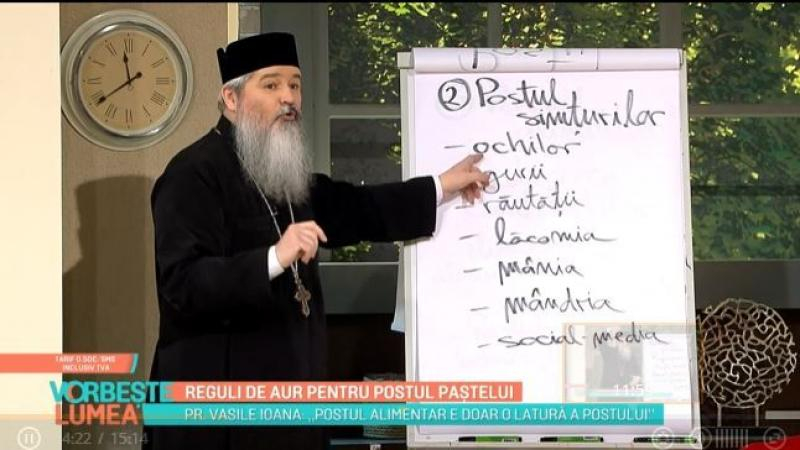 ② Postul
simțurilor
- ochilor
gurii
- răutății
- lăcomia
- mânia
- mândria
- social-media
TARIF 0.50€/SMS
INCLUSIV TVA
VORBEȘTE
LUMEA
REGULI DE AUR PENTRU POSTUL PAȘTELUI
PR. VASILE IOANA: „POSTUL ALIMENTAR E DOAR O LATURĂ A POSTULUI"
4:22 / 15:14